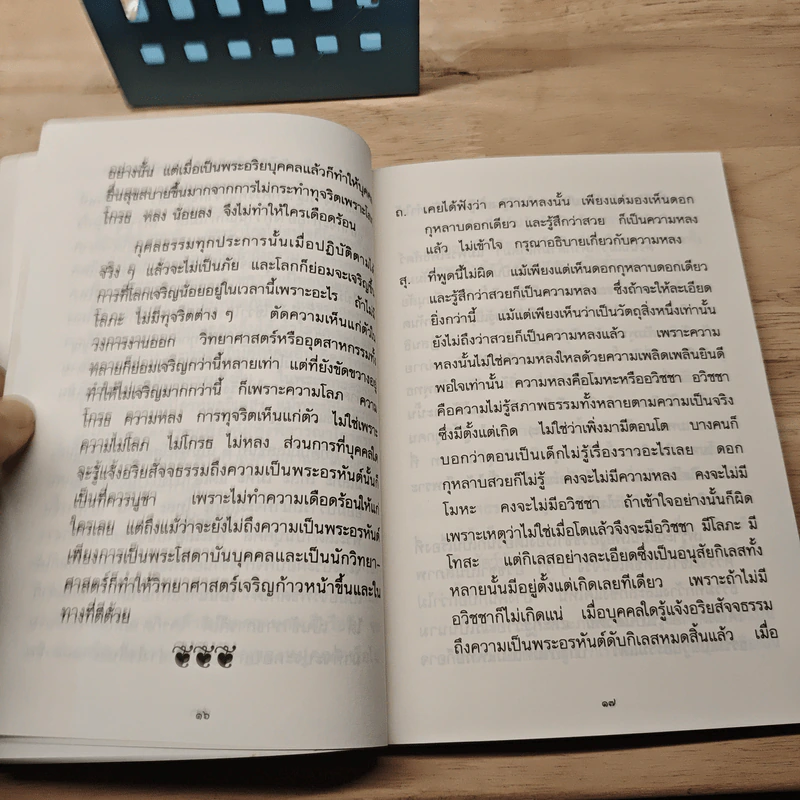 อย่างนั้น แต่เมื่อเป็นพระอริยบุคคลแล้วก็ทำให้บุคคล
อื่นสุขสบายขึ้นมากจากการไม่กระทำทุจริตเพราะโลภ
โกรธ หลง น้อยลง จึงไม่ทำให้ใครเดือดร้อน
กุศลธรรมทุกประการนั้นเมื่อปฏิบัติตามได้
จริง ๆ แล้วจะไม่เป็นภัย และโลกก็ย่อมจะเจริญขึ้น
การที่โลกเจริญน้อยอยู่ในเวลานี้เพราะอะไร ถ้าไม่มี
โลภะ ไม่มีทุจริตต่าง ๆ ตัดความเห็นแก่ตัวใน
วงการงานออก วิทยาศาสตร์หรืออุตสาหกรรมทั้ง
หลายก็ย่อมเจริญกว่านี้หลายเท่า แต่ที่ยังขัดขวางอยู่
ทำให้ไม่เจริญมากกว่านี้ ก็เพราะความโลภ ความ
โกรธ ความหลง การทุจริตเห็นแก่ตัว ไม่ใช่เพราะ
ความไม่โลภ ไม่โกรธ ไม่หลง ส่วนการที่บุคคลใด
จะรู้แจ้งอริยสัจจธรรมถึงความเป็นพระอรหันต์นั้นก็
เป็นที่ควรบูชา เพราะไม่ทำความเดือดร้อนให้แก่
ใครเลย แต่ถึงแม้ว่าจะยังไม่ถึงความเป็นพระอรหันต์
เพียงการเป็นพระโสดาบันบุคคลและเป็นนักวิทยา-
ศาสตร์ก็ทำให้วิทยาศาสตร์เจริญก้าวหน้าขึ้นและใน
ทางที่ดีด้วย
๑๖
ถ. เคยได้ฟังว่า ความหลงนั้น เพียงแต่มองเห็นดอก
กุหลาบดอกเดียว และรู้สึกว่าสวย ก็เป็นความหลง
แล้ว ไม่เข้าใจ กรุณาอธิบายเกี่ยวกับความหลง
สุ. ที่พูดนี้ไม่ผิด แม้เพียงแต่เห็นดอกกุหลาบดอกเดียว
และรู้สึกว่าสวยก็เป็นความหลง ซึ่งถ้าจะให้ละเอียด
ยิ่งกว่านี้ แม้แต่เพียงเห็นว่าเป็นวัตถุสิ่งหนึ่งเท่านั้น
ยังไม่ถึงว่าสวยก็เป็นความหลงแล้ว เพราะความ
หลงนั้นไม่ใช่ความหลงใหลด้วยความเพลิดเพลินยินดี
พอใจเท่านั้น ความหลงคือโมหะหรืออวิชชา อวิชชา
คือความไม่รู้สภาพธรรมทั้งหลายตามความเป็นจริง
ซึ่งมีตั้งแต่เกิด ไม่ใช่ว่าเพิ่งมามีตอนโต บางคนก็
บอกว่าตอนเป็นเด็กไม่รู้เรื่องราวอะไรเลย ดอก
กุหลาบสวยก็ไม่รู้ คงจะไม่มีความหลง คงจะไม่มี
โมหะ คงจะไม่มีอวิชชา ถ้าเข้าใจอย่างนั้นก็ผิด
เพราะเหตุว่าไม่ใช่เมื่อโตแล้วจึงจะมีอวิชชา มีโลภะ มี
โทสะ แต่กิเลสอย่างละเอียดซึ่งเป็นอนุสัยกิเลสทั้ง
หลายนั้นมีอยู่ตั้งแต่เกิดเลยทีเดียว เพราะถ้าไม่มี
อวิชชาก็ไม่เกิดแน่ เมื่อบุคคลใดรู้แจ้งอริยสัจจธรรม
ถึงความเป็นพระอรหันต์ดับกิเลสหมดสิ้นแล้ว เมื่อ
๑๗